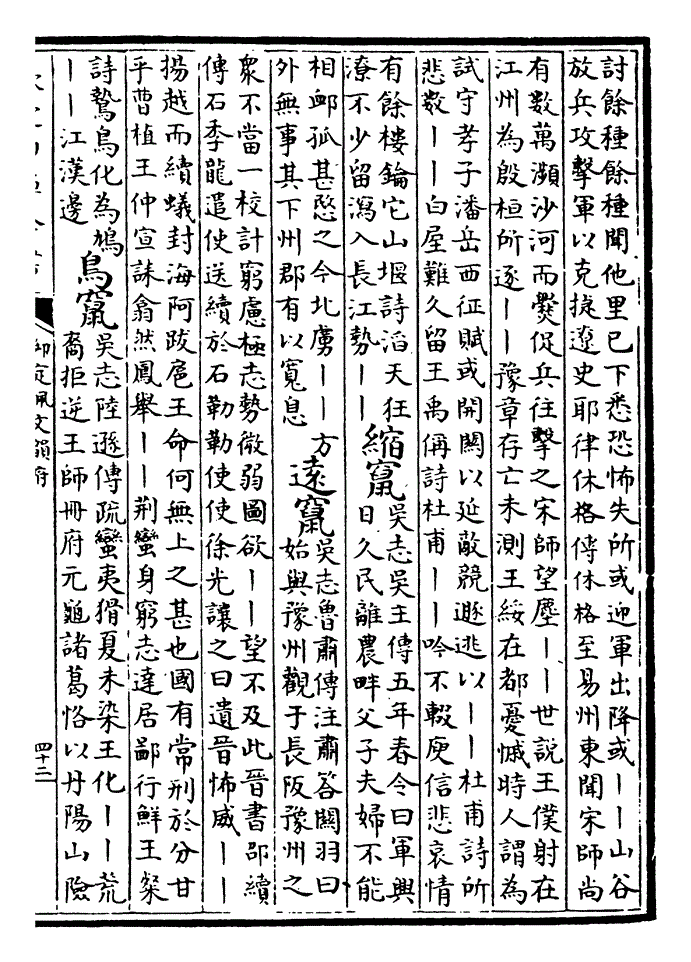 討餘種餘種聞他里已下悉恐怖失所或迎軍出降或丨丨山谷
放兵攻擊軍以克捷遼史耶律休格傳休格至易州東聞宋師尚
有數萬瀕沙河而爨促兵往擊之宋師望塵丨丨世說王僕射在
江州為殷桓所逐丨丨豫章存亡未測王綏在都憂慽時人謂為
試守孝子潘岳西征賦或開關以延敵競遯逃以丨丨杜甫詩所
悲數丨丨白屋難久留王禹偁詩杜甫丨丨吟不輟庾信悲哀情
有餘樓鑰它山堰詩滔天狂
潦不少留瀉入長江勢丨丨
縮竄
吳志吳主傳五年春令曰軍興
日久民離農畔父子夫婦不能
相卹孤甚愍之今北虜丨丨方
外無事其下州郡有以寬息
遠竄
吳志魯肅傳注肅答關羽曰
始與豫州觀于長阪豫州之
衆不當一校計窮慮極志勢微弱圖欲丨丨望不及此晉書邵續
傳石季龍遣使送續於石勒勒使使徐光讓之曰遺晉怖威丨丨
揚越而續蟻封海阿跋扈王命何無上之甚也國有常刑於分甘
乎曹植王仲宣誄翕然鳳舉丨丨荊蠻身窮志達居鄙行鮮王粲
詩鷙鳥化為鳩
丨丨江漢邊
鳥竄
吳志陸遜傳疏蠻夷猾夏未染王化丨丨荒
裔拒逆王師冊府元龜諸葛恪以丹陽山險
御定佩文韻府
四十二